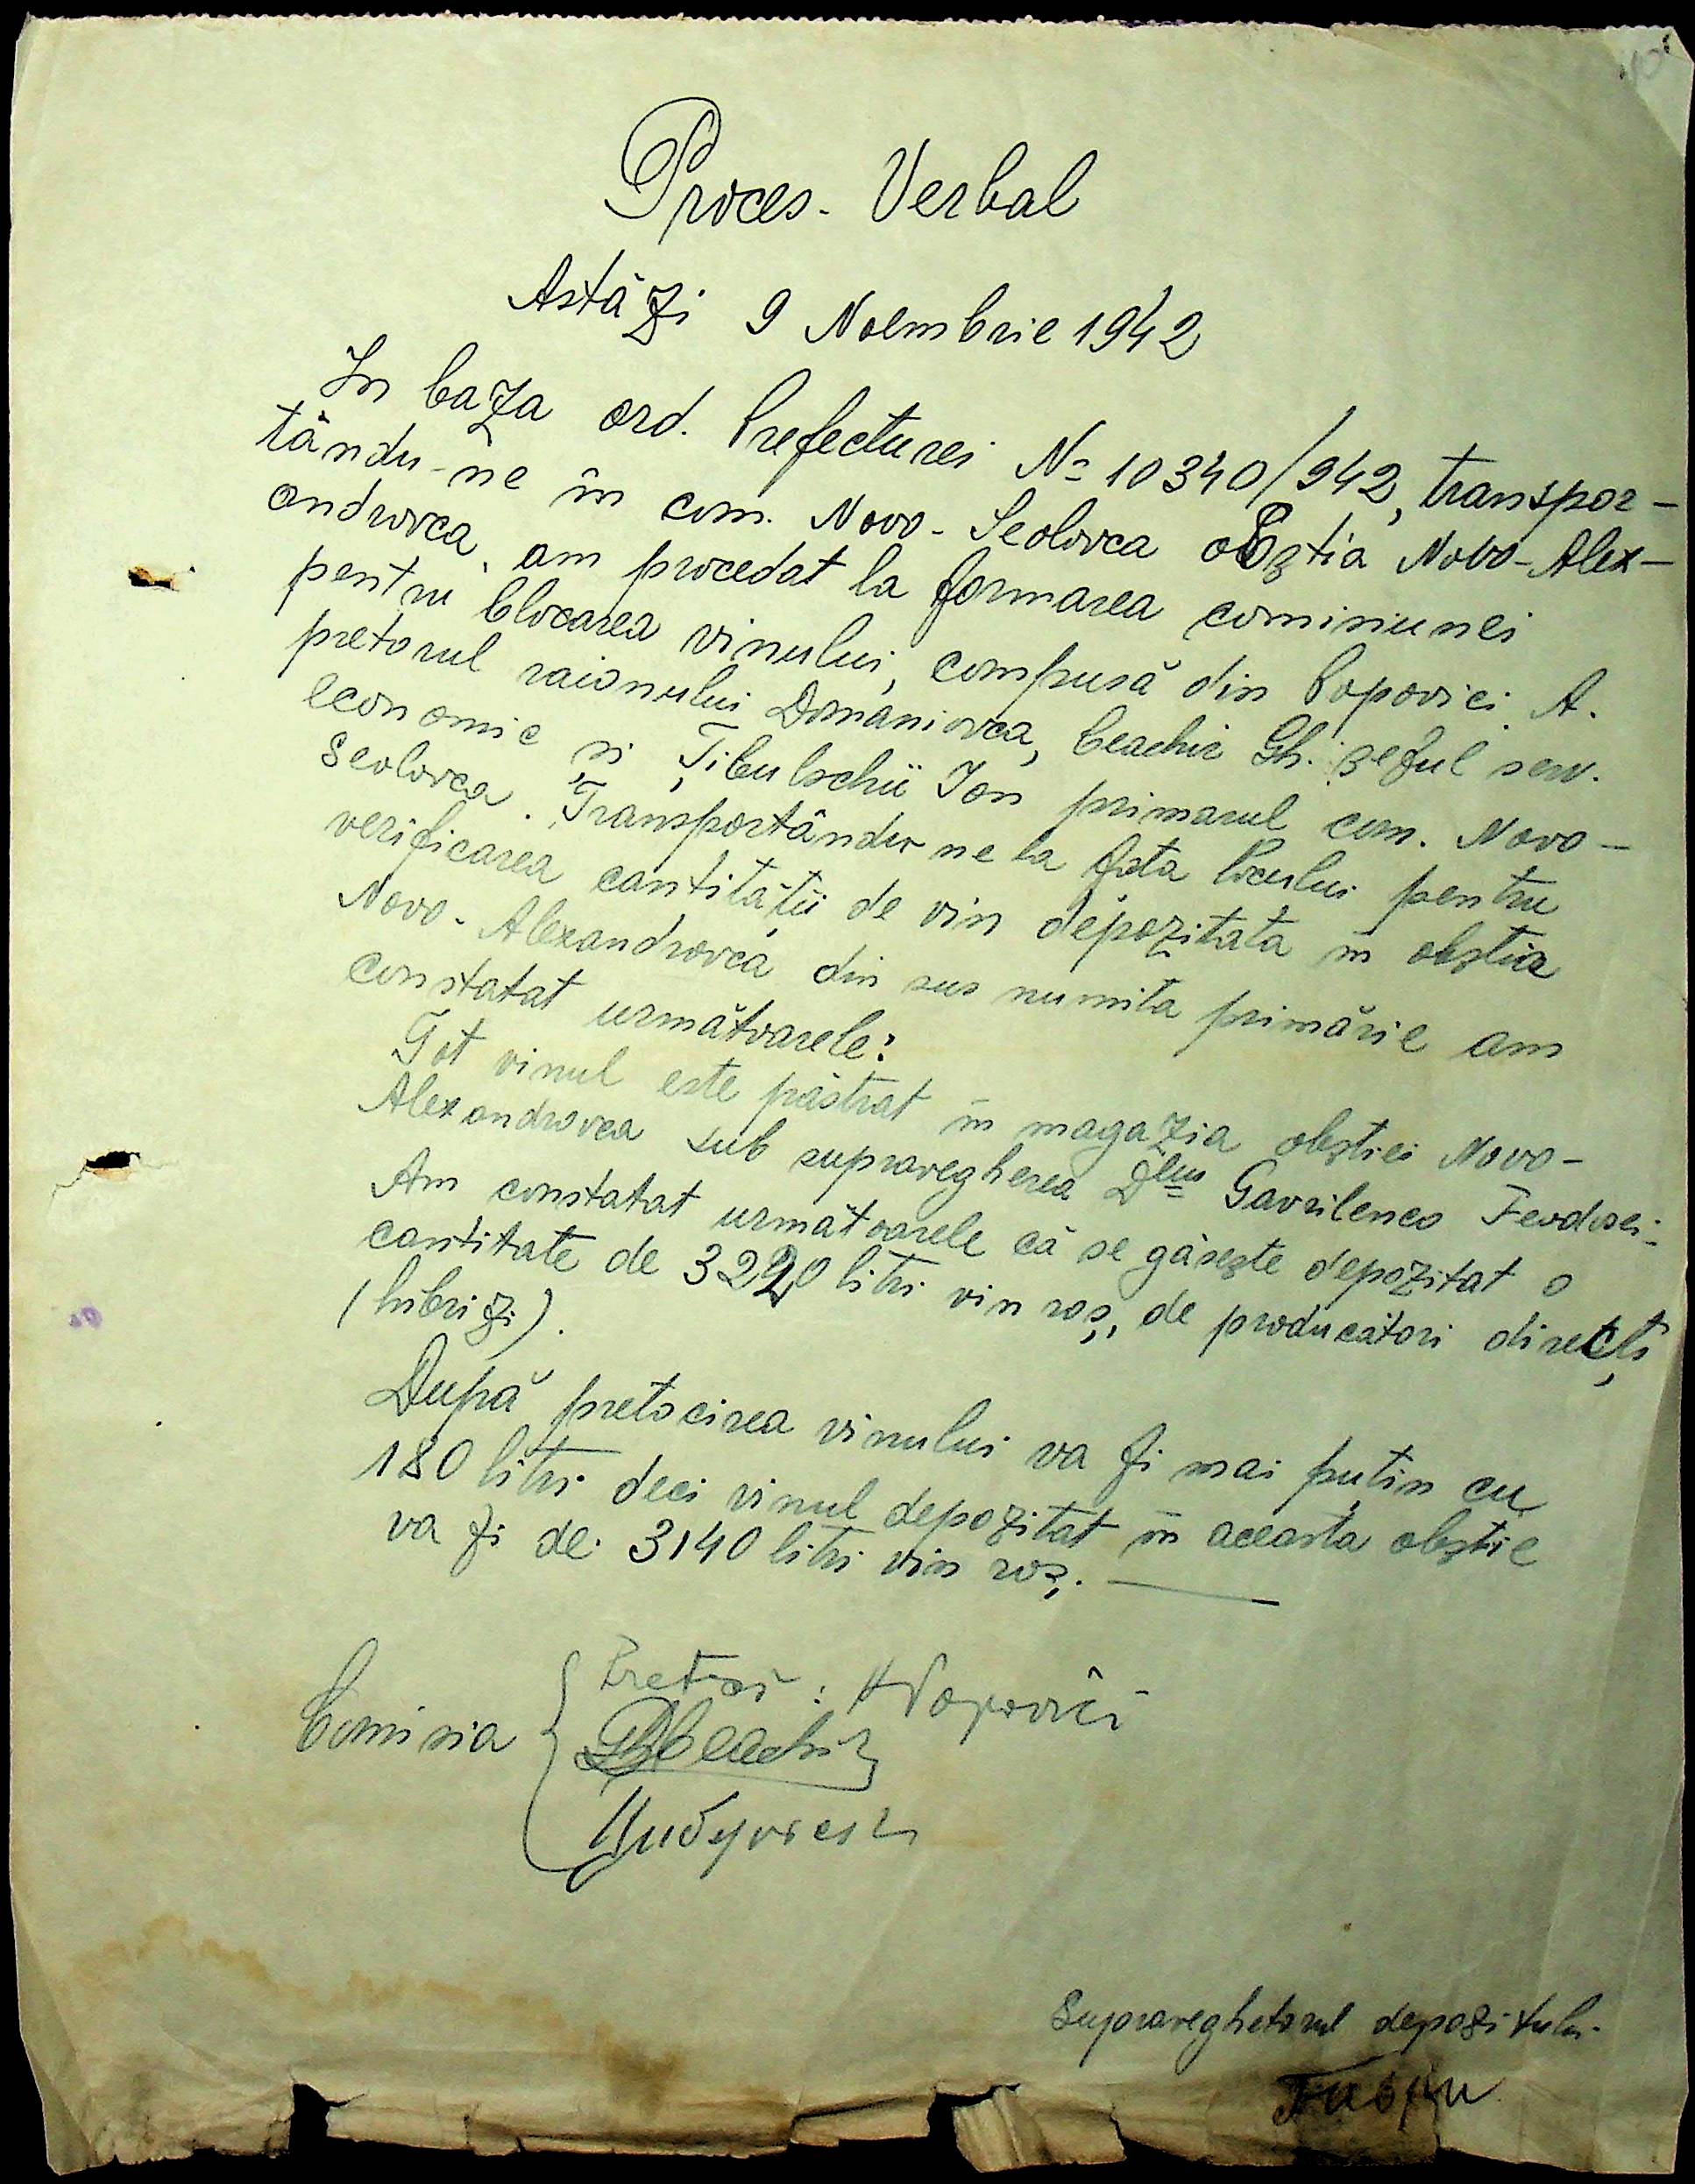 Proces-Verbal
Astăzi 9 Noembrie 1942
In baza ord. Prefecturei № 10340/942, transpor-
tându-ne în com. Novo-Seolovca obștia Novo-Alex-
androvca, am procedat la formarea comisiunei
pentru blocarea vinului, compusă din Popovici A.
pretorul raionului Domaniovca, Ceachir Gh. șeful serv.
economic și Țibulschii Ion primarul com. Novo-
Seolovca. Transportându-ne la fața locului pentru
verificarea cantității de vin depozitata în obștia
Novo-Alexandrovca din sus numita primărie am
constatat următoarele:
Tot vinul este păstrat în magazia obștiei Novo-
Alexandrovca sub supravegherea Dlui Gavrilenco Feodosei.
Am constatat următoarele că se găsește depozitat o
cantitate de 3220 litri vin roș, de producători direcți
(hibrizi).
După pretocirea vinului va fi mai puțin cu
180 litri deci vinul depozitat în aceasta obștie
va fi de 3140 litri vin roș.
Comisia
Pretor: A Popovici
Gh Ceachir
Supraveghetorul depozitului